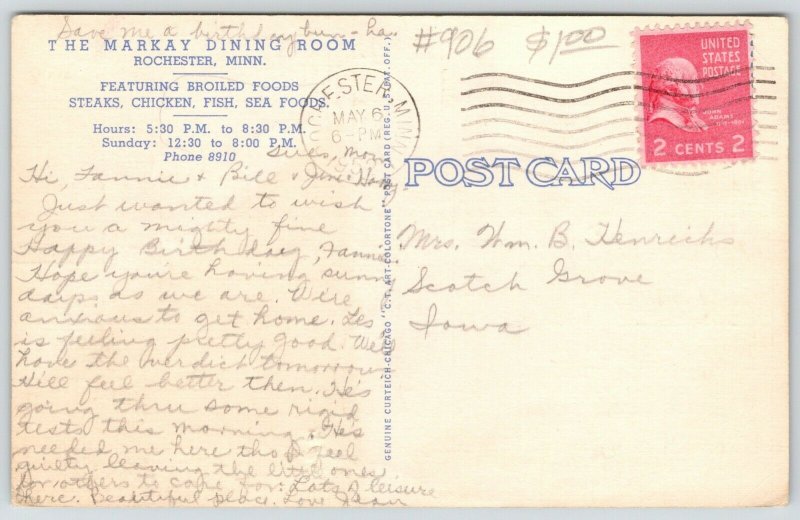 Save me a birthday bun - ha
THE MARKAY DINING ROOM
ROCHESTER, MINN.
FEATURING BROILED FOODS
STEAKS, CHICKEN, FISH, SEA FOODS.
Hours: 5:30 P.M. to 8:30 P.M.
Sunday: 12:30 to 8:00 P.M.
Phone 8910
Hi, Fannie & Bill &
Just wanted to wish
you a mighty fine
Happy Birthday, Fannie.
Hope you're having sunny
days as we are. We're
anxious to get home. Les
is feeling pretty good. We'll
have the verdict tomorrow
Will feel better then. He's
going thru some rigid
tests this morning. He's
needed me here tho I feel
guilty leaving the little ones
for others to care for. Lots of leisure
here. Beautiful place. Love Jean
GENUINE CURTEICH-CHICAGO "C.T. ART-COLORTONE" POST CARD (REG. U.S. PAT. OFF.)
#906 $1.00
ROCHESTER, MINN.
MAY 6
6-PM
UNITED
STATES
POSTAGE
JOHN
ADAMS
2 CENTS 2
POST CARD
Mrs. Wm. B. Henrichs
Scotch Grove
Iowa